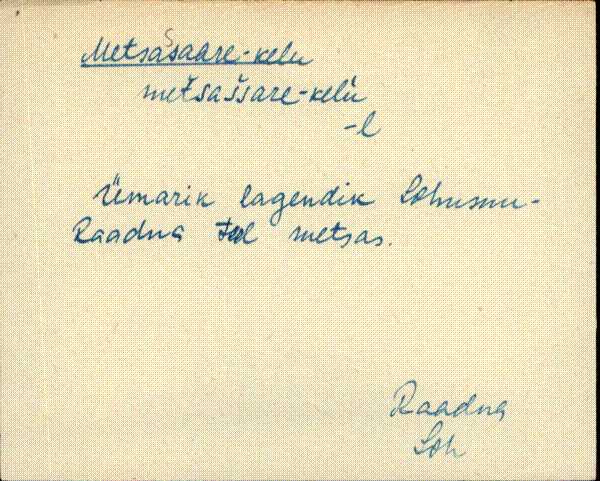 Metsasaare-kelu
metšaššare-kelu
-l
Ümarik lagendik Lohusuu-
Raadna teel metsas.
Raadna
Loh